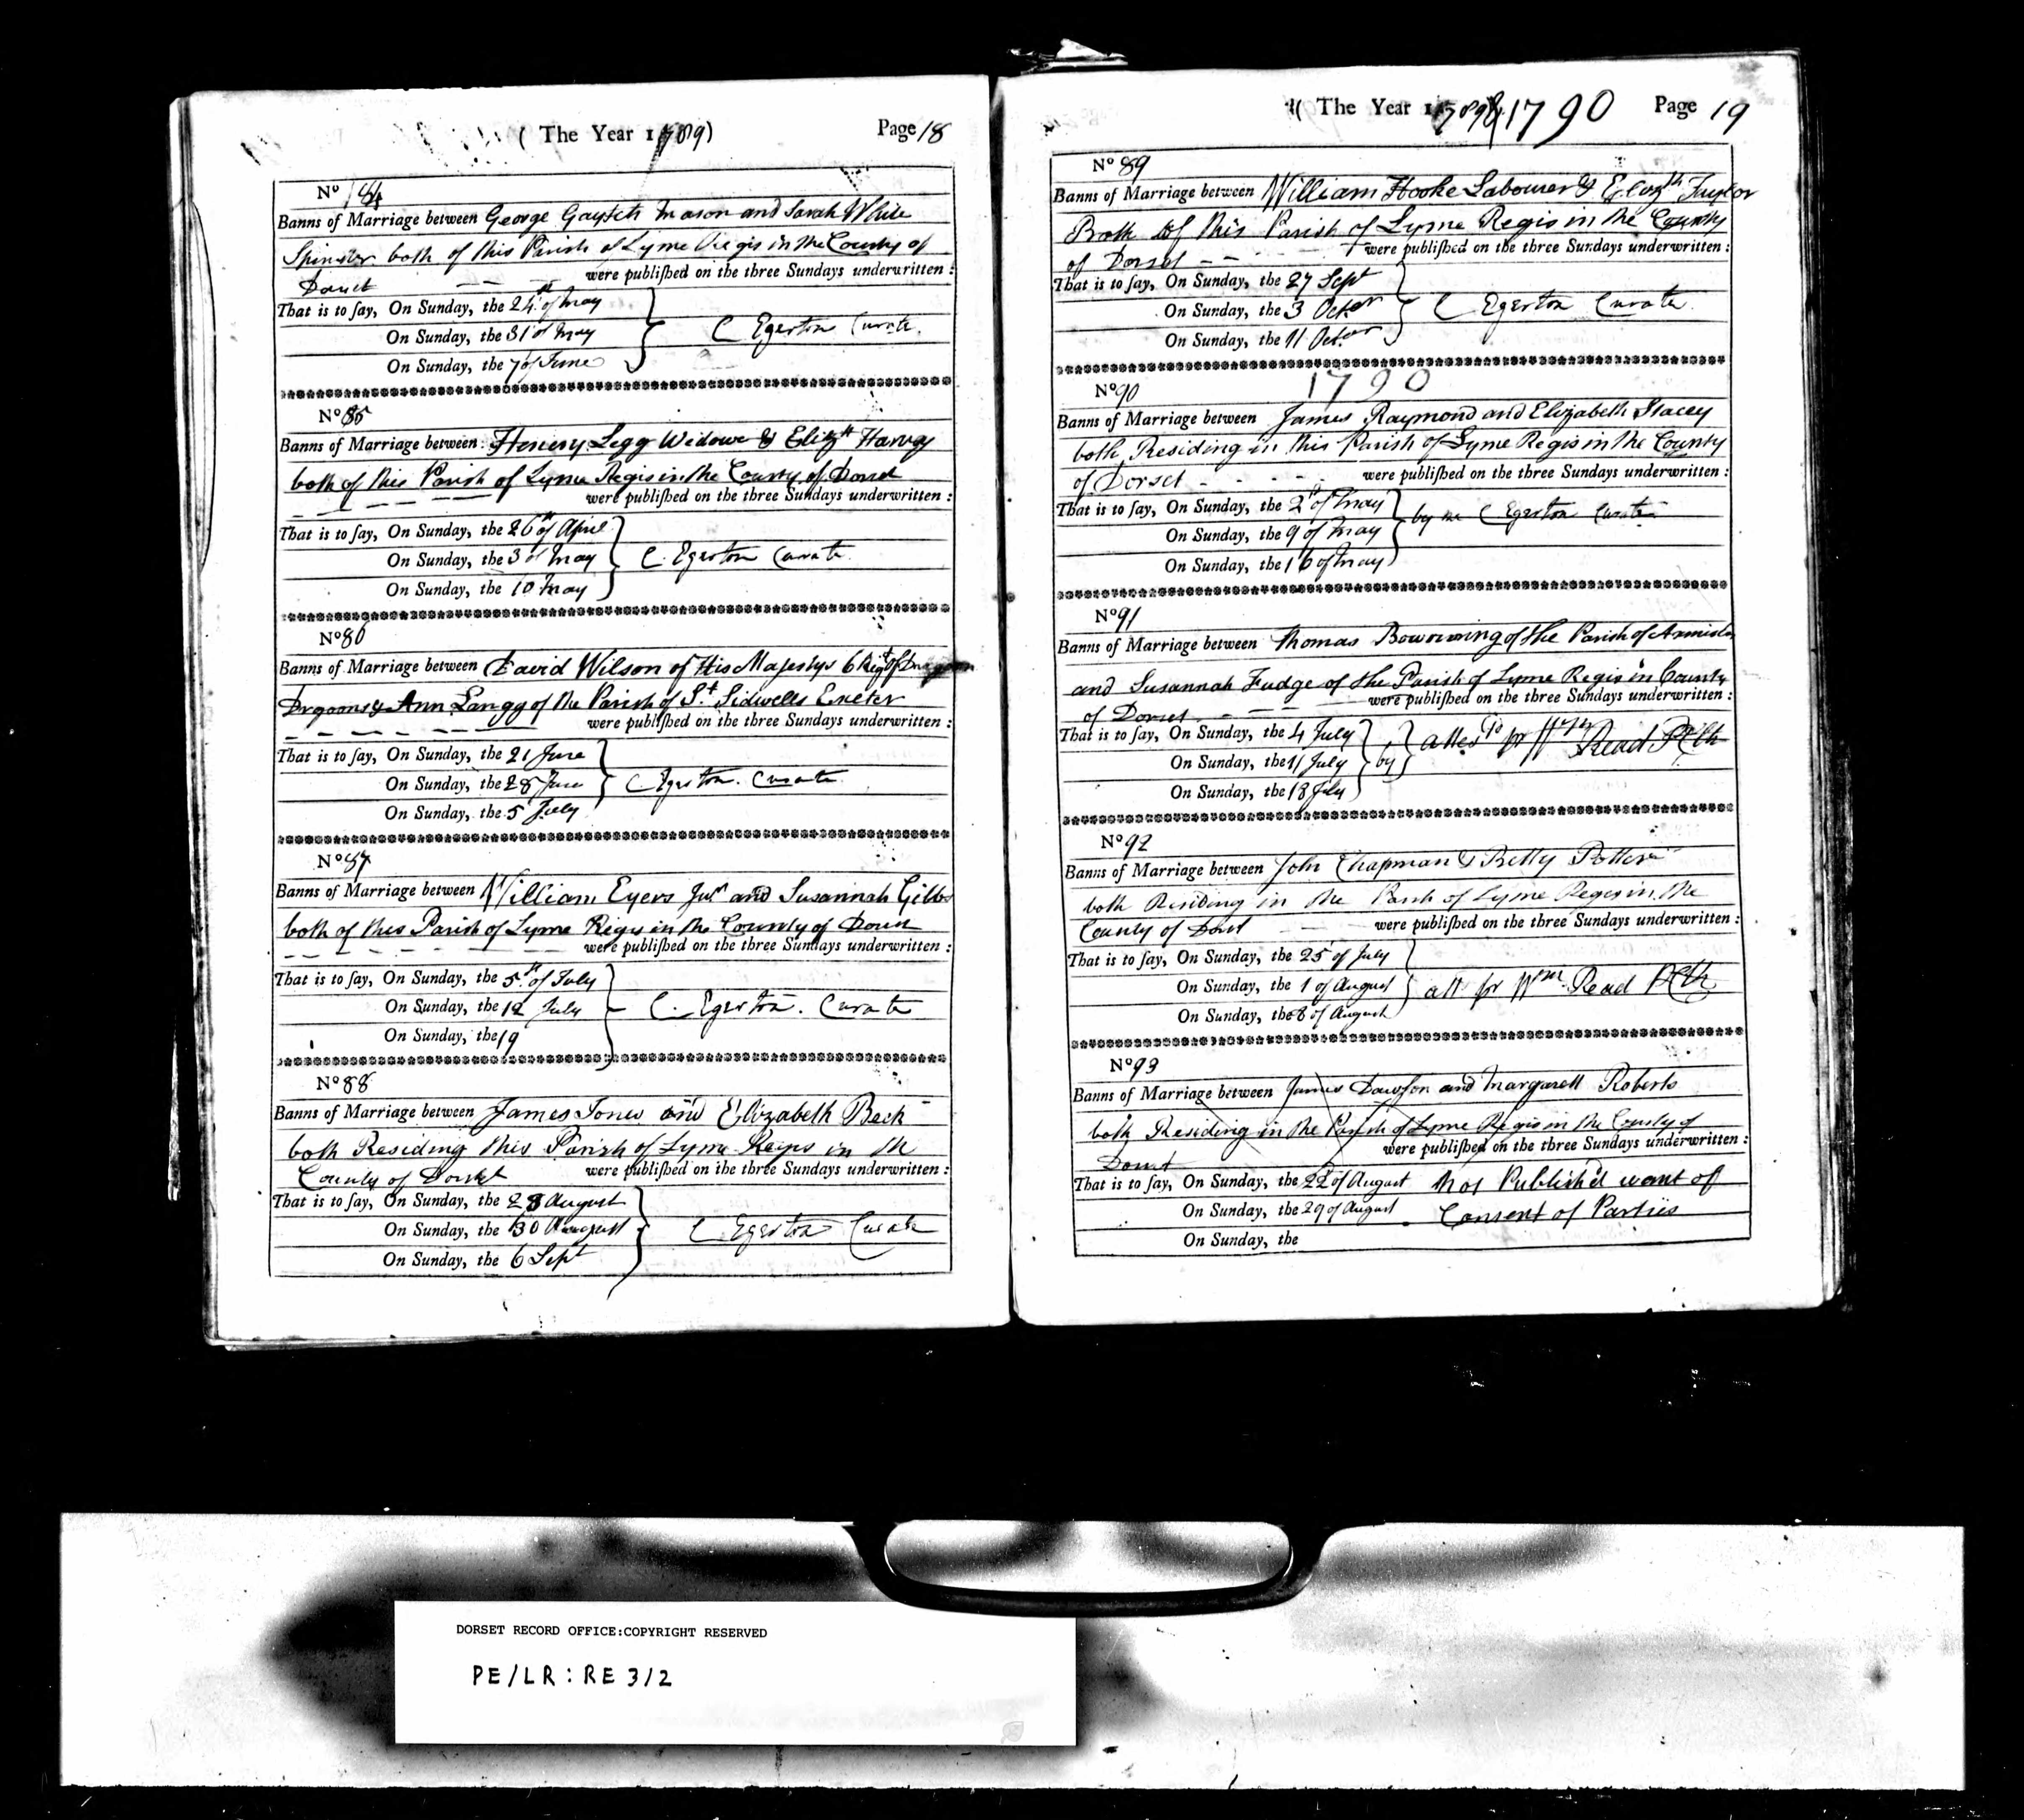 ( The Year 1789) Page 18
No 84
Banns of Marriage between George Mason and Sarah White
Spinster both of this Parish of Lyme Regis in the County of
Dorset were published on the three Sundays underwritten :
That is to say, On Sunday, the 24th of May
On Sunday, the 31 of May C Egerton Curate
On Sunday, the 7 of June
No 85
Banns of Marriage between Henery Legg Widowe & Elizth Harvey
both of this Parish of Lyme Regis in the County of Dorset
were published on the three Sundays underwritten :
That is to say, On Sunday, the 26th of April
On Sunday, the 3 of May C. Egerton Curate
On Sunday, the 10 May
No 86
Banns of Marriage between David Wilson of His Majestys 6 Regt of
Drgoons & Ann Langg of the Parish of St Sidwells Exeter
were published on the three Sundays underwritten :
That is to say, On Sunday, the 21 June
On Sunday, the 28 June C Egerton. Curate
On Sunday, the 5 July
No 87
Banns of Marriage between William Eyers Junr and Susannah Gibbs
both of this Parish of Lyme Regis in the County of Dorset
were published on the three Sundays underwritten :
That is to say, On Sunday, the 5th of July
On Sunday, the 12 July C. Egerton. Curate
On Sunday, the 19
No 88
Banns of Marriage between James Jones and Elizabeth Beck
both Residing this Parish of Lyme Regis in the
County of Dorset were published on the three Sundays underwritten :
That is to say, On Sunday, the 23 August
On Sunday, the 30 August C Egerton Curate
On Sunday, the 6 Sept
( The Year 1789 1790 Page 19
No 89
Banns of Marriage between William Hooke Labourer & Elizth Taylor
Both of this Parish of Lyme Regis in the County
of Dorset were published on the three Sundays underwritten :
That is to say, On Sunday, the 27 Sept
On Sunday, the 3 Octor C Egerton Curate
On Sunday, the 11 Octor
No 90 1790
Banns of Marriage between James Raymond and Elizabeth Stacey
both Residing in this Parish of Lyme Regis in the County
of Dorset were published on the three Sundays underwritten :
That is to say, On Sunday, the 2d of May
On Sunday, the 9 of May by me C Egerton Curate
On Sunday, the 16 of May
No 91
Banns of Marriage between Thomas Bowrwing of the Parish of
and Susannah Fudge of the Parish of Lyme Regis in County
of Dorset were published on the three Sundays underwritten :
That is to say, On Sunday, the 4 July
On Sunday, the 11 July by Read
On Sunday, the 18 July
No 92
Banns of Marriage between John Chapman & Betty Potter
both Residing in the Parish of Lyme Regis in the
County of Dorset were published on the three Sundays underwritten :
That is to say, On Sunday, the 25 of July
On Sunday, the 1 of August att pr Wm Read
On Sunday, the 8 of August
No 93
Banns of Marriage between James Dawson and Margarett Roberts
both Residing in the Parish of Lyme Regis in the County of
Dorset were published on the three Sundays underwritten :
That is to say, On Sunday, the 22 of August Not Publish'd want of
On Sunday, the 29 of August Consent of Parties
On Sunday, the
DORSET RECORD OFFICE:COPYRIGHT RESERVED
PE/LR:RE 3/2